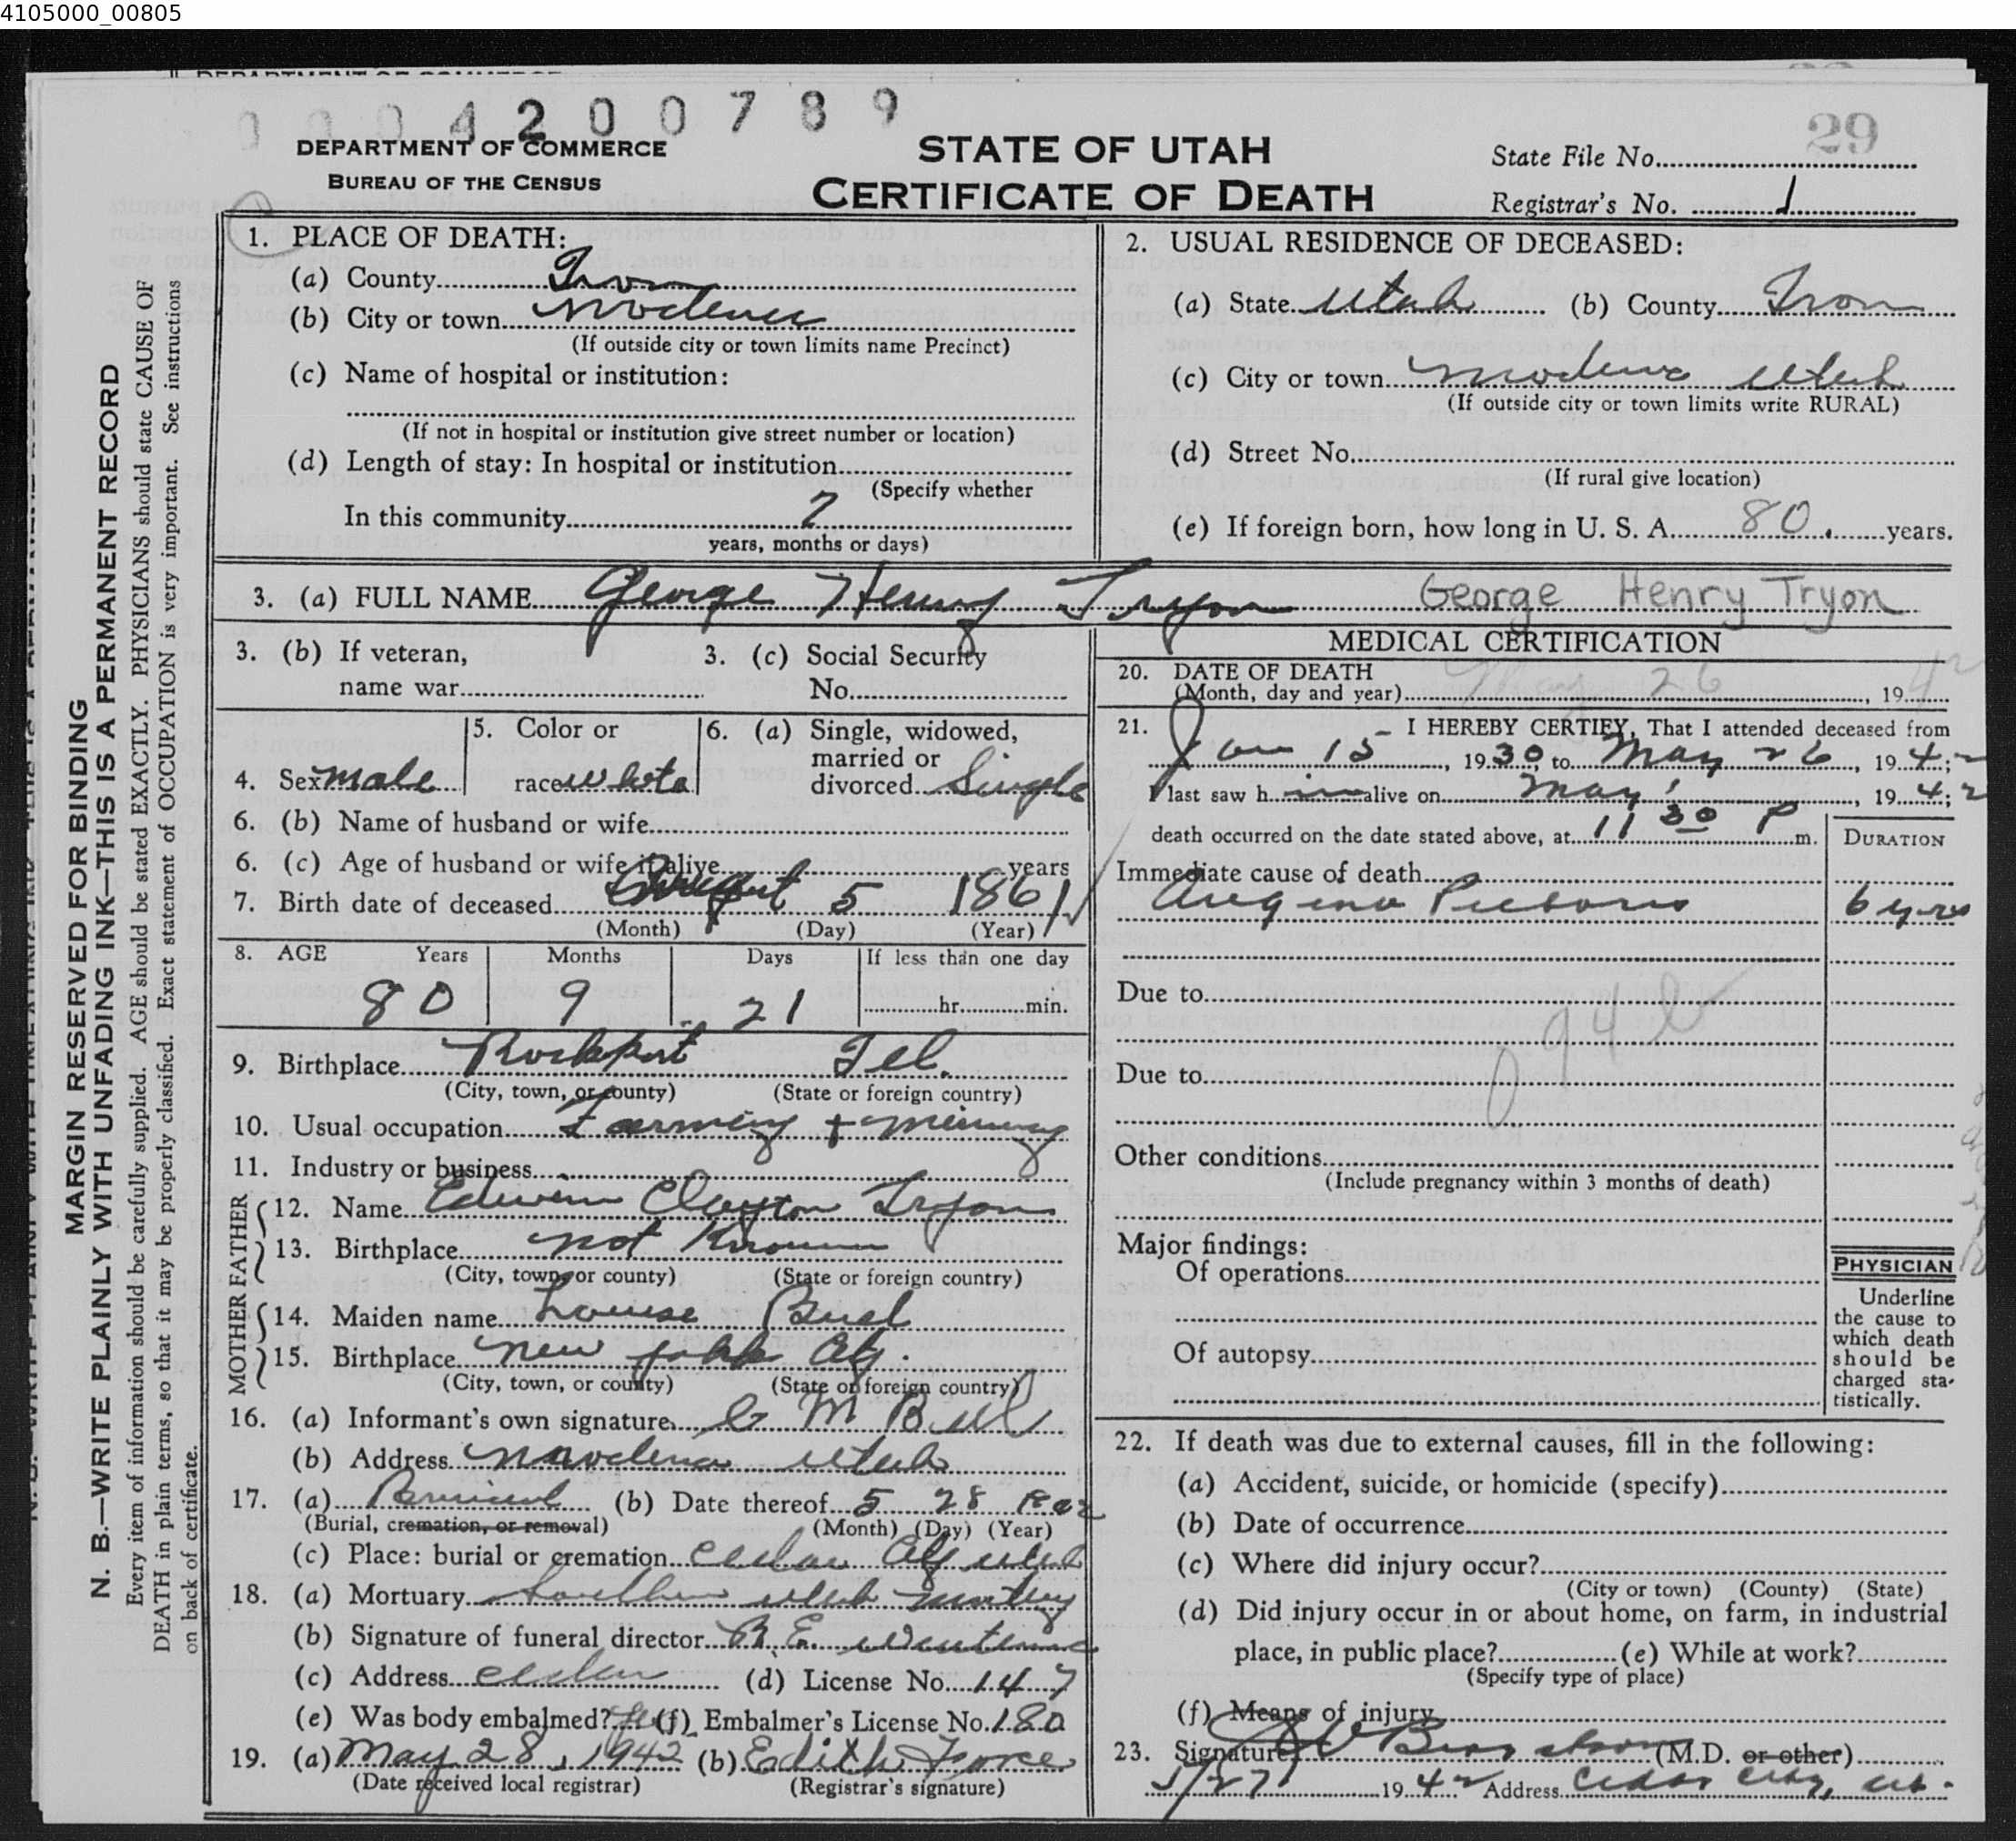 4105000_00805
0004200789
29
DEPARTMENT OF COMMERCE
BUREAU OF THE CENSUS
STATE OF UTAH
CERTIFICATE OF DEATH
State File No.
Registrar's No. 1
MARGIN RESERVED FOR BINDING
N. B.—WRITE PLAINLY WITH UNFADING INK—THIS IS A PERMANENT RECORD
Every item of information should be carefully supplied. AGE should be stated EXACTLY. PHYSICIANS should state CAUSE OF
DEATH in plain terms, so that it may be properly classified. Exact statement of OCCUPATION is very important. See instructions
on back of certificate.
1. PLACE OF DEATH:
(a) County Iron
(b) City or town Modena
(If outside city or town limits name Precinct)
(c) Name of hospital or institution:
(If not in hospital or institution give street number or location)
(d) Length of stay: In hospital or institution
(Specify whether
In this community
years, months or days)
2. USUAL RESIDENCE OF DECEASED:
(a) State Utah (b) County Iron
(c) City or town Modena Utah
(If outside city or town limits write RURAL)
(d) Street No.
(If rural give location)
(e) If foreign born, how long in U. S. A. 80 years.
3. (a) FULL NAME George Henry Tryon George Henry Tryon
3. (b) If veteran,
name war
3. (c) Social Security
No.
4. Sex male
5. Color or
race white
6. (a) Single, widowed,
married or
divorced Single
6. (b) Name of husband or wife
6. (c) Age of husband or wife if alive years
7. Birth date of deceased August 5 1861
(Month) (Day) (Year)
8. AGE Years Months Days If less than one day
80 9 21 hr. min.
9. Birthplace Rockport
(City, town, or county) (State or foreign country)
10. Usual occupation Farming + mining
11. Industry or business
FATHER
12. Name Edwin Clayton Tryon
13. Birthplace not Known
(City, town, or county) (State or foreign country)
MOTHER
14. Maiden name Louise Buel
15. Birthplace New York City
(City, town, or county) (State or foreign country)
16. (a) Informant's own signature M Bull
(b) Address Modena Utah
17. (a) Burial (b) Date thereof 5 28
(Burial, cremation, or removal) (Month) (Day) (Year)
(c) Place: burial or cremation Cedar City Utah
18. (a) Mortuary Southern Utah
(b) Signature of funeral director
(c) Address Cedar (d) License No. 147
(e) Was body embalmed? (f) Embalmer's License No. 180
19. (a) May 28, 1942 (b) Edith Force
(Date received local registrar) (Registrar's signature)
MEDICAL CERTIFICATION
20. DATE OF DEATH
(Month, day and year) May 26, 1942
21. I HEREBY CERTIFY, That I attended deceased from
Jan 15, 1930, to May 26, 1942;
I last saw him alive on May, 1942;
death occurred on the date stated above, at 11 30 P m.
DURATION
Immediate cause of death
Angina Pectoris 6 yrs
Due to
094b
Due to
Other conditions
(Include pregnancy within 3 months of death)
Major findings:
Of operations
Of autopsy
PHYSICIAN
Underline
the cause to
which death
should be
charged sta-
tistically.
22. If death was due to external causes, fill in the following:
(a) Accident, suicide, or homicide (specify)
(b) Date of occurrence
(c) Where did injury occur?
(City or town) (County) (State)
(d) Did injury occur in or about home, on farm, in industrial
place, in public place? (e) While at work?
(Specify type of place)
(f) Means of injury
23. Signature (M.D. or other)
5/27 1942 Address Cedar City, Ut.